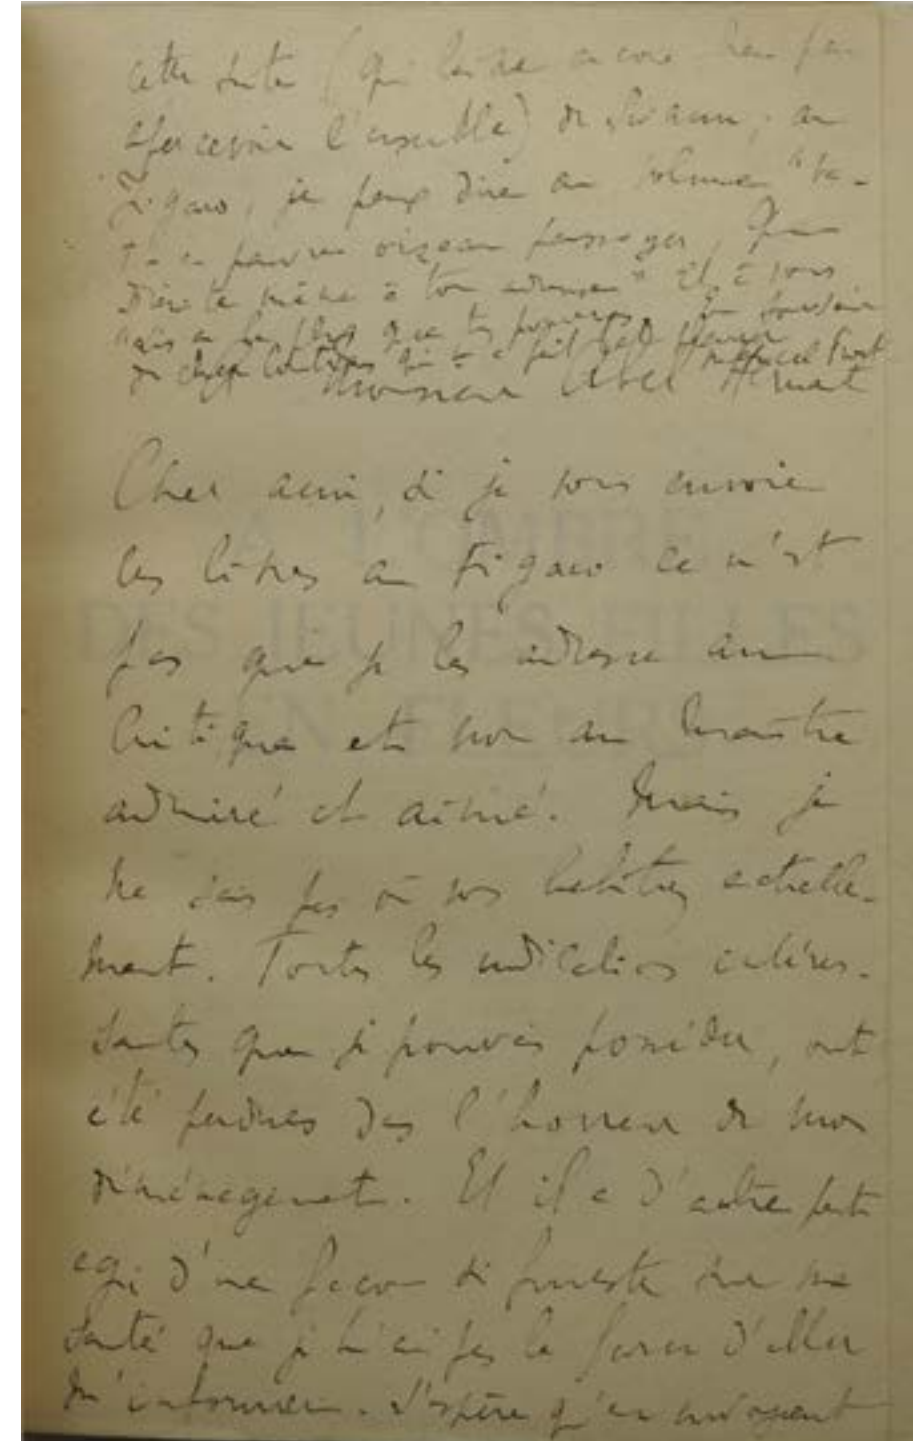 cette suite (qui laisse encore peu
apercevoir l'ensemble) de Swann, au
Figaro, je peux dire au volume "Va-
t'en pauvre oiseau passager, Que
Dieu te mène à ton adresse" Et à vous
plus que tes
qui fait Marcel Proust
Monsieur Abel Hermant
Cher ami, si je vous envoie
ces livres au Figaro ce n'est
pas que je les adresse au
Critique et non au Maître
admiré et aimé. Mais je
ne sais pas où vous habitez actuelle-
ment. Toutes les indications intéres-
santes que je pouvais posséder, ont
été perdues dans l'horreur de mon
déménagement. Et il a d'autre part
agi d'une façon si funeste sur ma
santé que je n'ai pas la force d'aller
m'informer. J'espère qu'en envoyant
A L'OMBRE
DES JEUNES FILLES
EN FLEURS